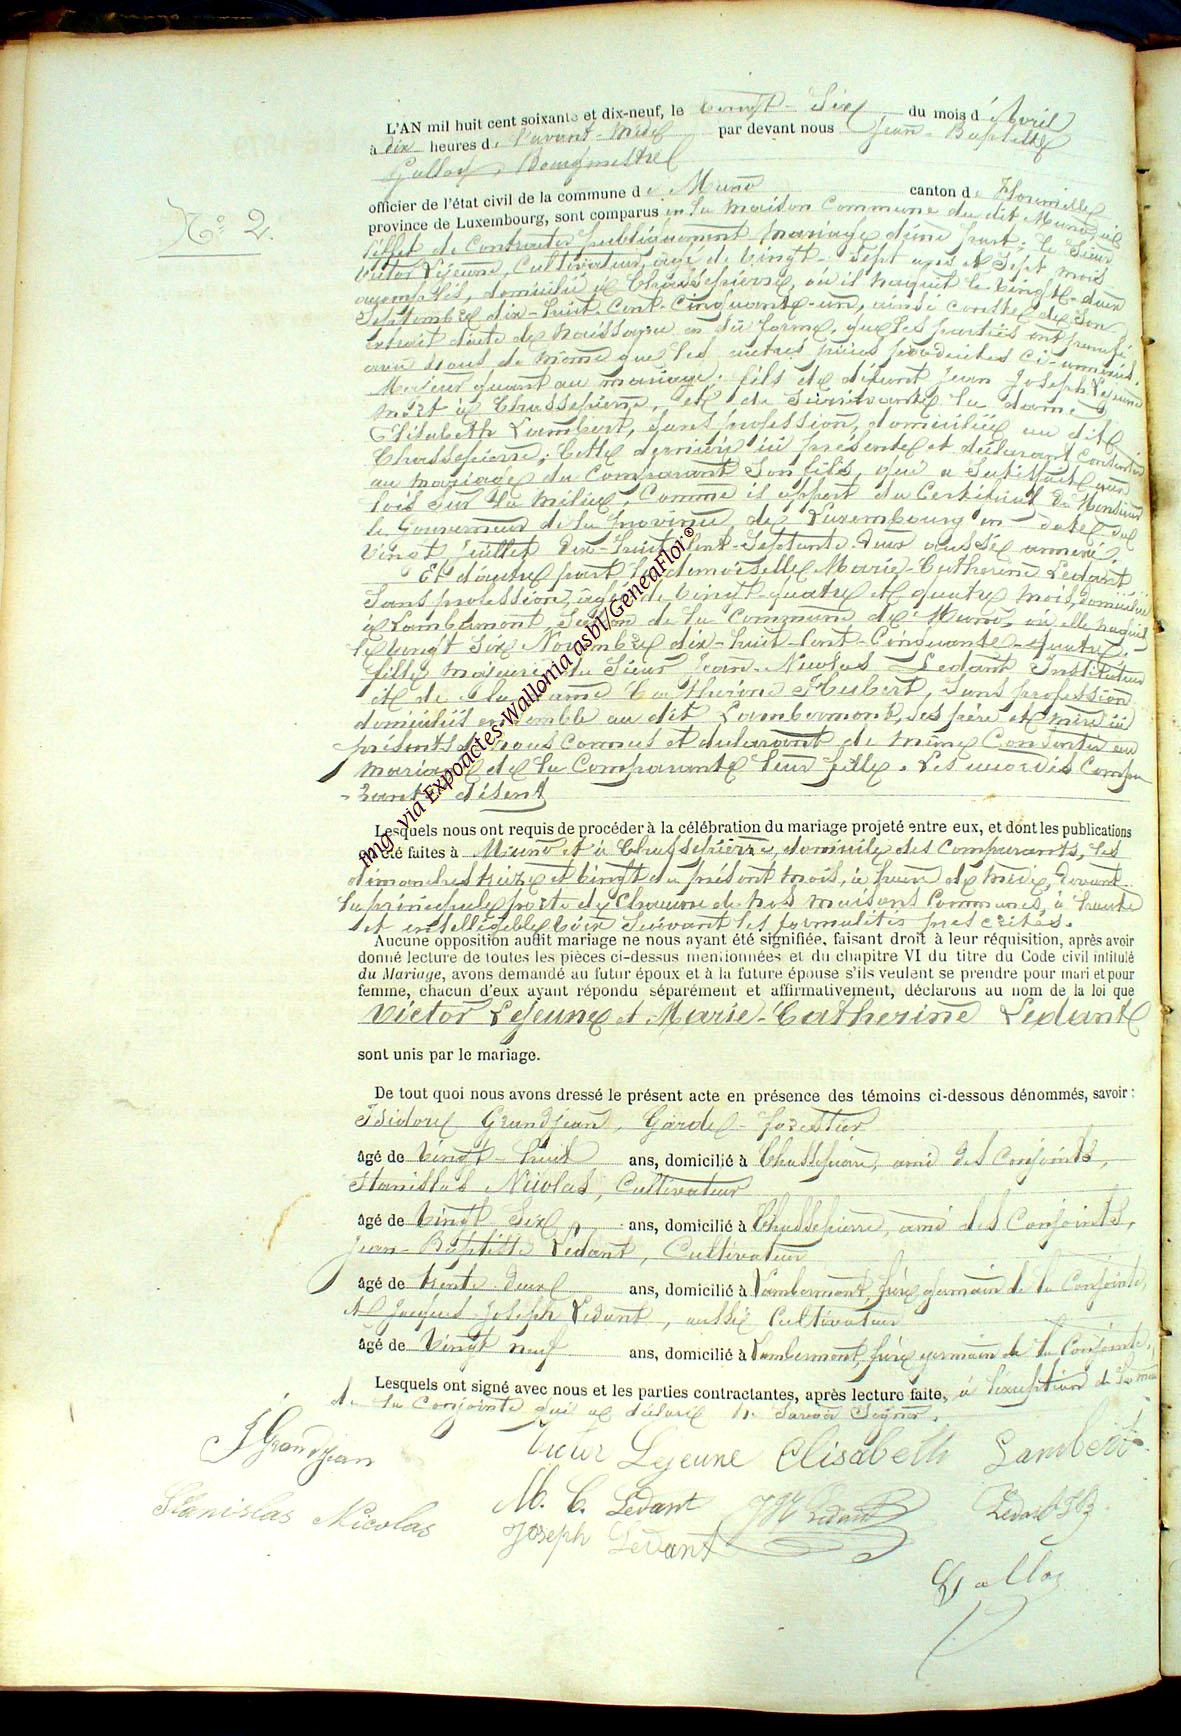 L'AN mil huit cent soixante et dix-neuf, le vingt-six du mois d'Avril
à dix heures de l'avant-midi par devant nous Jean-Baptiste
Bourgmestre
officier de l'état civil de la commune de Muno canton de Florenville
province de Luxembourg, sont comparus en la maison commune du dit Muno, à
l'effet de contracter publiquement mariage d'une part; le Sieur
Victor Lejeune, Cultivateur, âgé de vingt-sept ans et sept mois
accomplis, domicilié à Chassepierre, où il naquit le vingt-deux
Septembre dix-huit-cent-cinquante-un, ainsi conste de son
extrait d'acte de naissance en due forme, que les parties ont produit
nous de même que les autres pièces produites ci-annexées.
Majeur quant au mariage; fils de défunt Jean Joseph Lejeune
mort à Chassepierre, et de survivante la dame
Elisabeth Lambert, sans profession, domiciliée au dit
Chassepierre; Cette dernière ici présente et déclarant consentir
au mariage du comparant son fils, qui a satisfait aux
lois sur la milice, comme il appert du Certificat de Monsieur
le Gouverneur de la province de Luxembourg en date du
vingt juillet dix-huit-cent-septante-deux aussi annexé.
Et d'autre part la demoiselle Marie-Catherine Ledant
sans profession, âgée de vingt-quatre et quatre mois, domiciliée
à Lambermont, Section de la Commune de Muno, où elle naquit
le vingt six Novembre dix-huit-cent-cinquante-quatre,
fille majeure du Sieur Jean-Nicolas Ledant Instituteur
et de la dame Catherine Hubert, sans profession
domiciliés ensemble au dit Lambermont, ses père et mère ici
présents à nous connus et déclarant de même consentir au
mariage de la comparante leur fille. Les compa
-rants disent
Lesquels nous ont requis de procéder à la célébration du mariage projeté entre eux, et dont les publications
ont été faites à Muno et à Chassepierre, domicile des comparants, les
dimanches treize et vingt du présent mois, à heure de midi, devant
la principale porte de chacune de nos maisons communes, à haute
et intelligible voix suivant les formalités prescrites.
Aucune opposition audit mariage ne nous ayant été signifiée, faisant droit à leur réquisition, après avoir
donné lecture de toutes les pièces ci-dessus mentionnées et du chapitre VI du titre du Code civil intitulé
du Mariage, avons demandé au futur époux et à la future épouse s'ils veulent se prendre pour mari et pour
femme, chacun d'eux ayant répondu séparément et affirmativement, déclarons au nom de la loi que
Victor Lejeune et Marie-Catherine Ledant
sont unis par le mariage.
De tout quoi nous avons dressé le présent acte en présence des témoins ci-dessous dénommés, savoir :
Isidore Grandjean, Garde-forestier
âgé de vingt-huit ans, domicilié à Chassepierre, ami des conjoints,
Stanislas Nicolas, Cultivateur
âgé de vingt six ans, domicilié à Chassepierre, ami des conjoints,
Jean-Baptiste Ledant, Cultivateur
âgé de trente-deux ans, domicilié à Lambermont, frère germain de la conjointe,
et Jacques Joseph Ledant, aussi Cultivateur
âgé de vingt neuf ans, domicilié à Lambermont, frère germain de la conjointe,
Lesquels ont signé avec nous et les parties contractantes, après lecture faite, à l'exception de la mère
de la conjointe qui a déclaré ne savoir signer.
N° 2.
J Grandjean Victor Lejeune Elisabeth Lambert
Stanislas Nicolas M. C. Ledant Ledant
Joseph Ledant
img via Expoactes-Wallonia asbl/GeneaFlor®